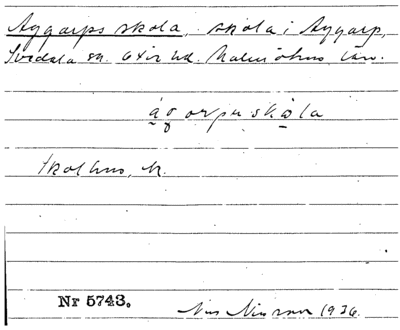 Aggarps skola, skola i Aggarp,
Svedala sn. Oxie hd. Malmöhus län.
ágorpuskåla
Skolhus, N.
Nr 5743.
1936.